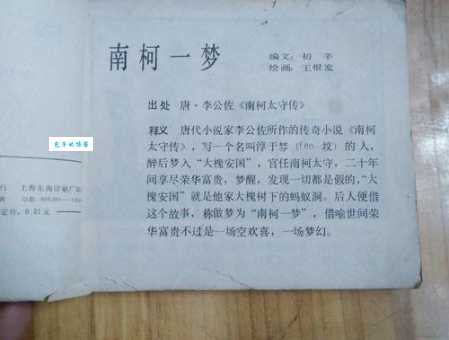 南柯一梦
编文：初辛
绘画：王根发
出处 唐·李公佐《南柯太守传》
释义 唐代小说家李公佐所作的传奇小说《南柯
太守传》，写一个名叫淳于棼（fén 坟）的人，
醉后梦入“大槐安国”，官任南柯太守，二十年
间享尽荣华富贵，梦醒，发现一切都是假的，“大
槐安国”就是他家大槐树下的蚂蚁洞。后人便借
这个故事，称做梦为“南柯一梦”，借喻世间荣
华富贵不过是一场空欢喜，一场梦幻。
行 上海东海印刷厂
定价：0.21元